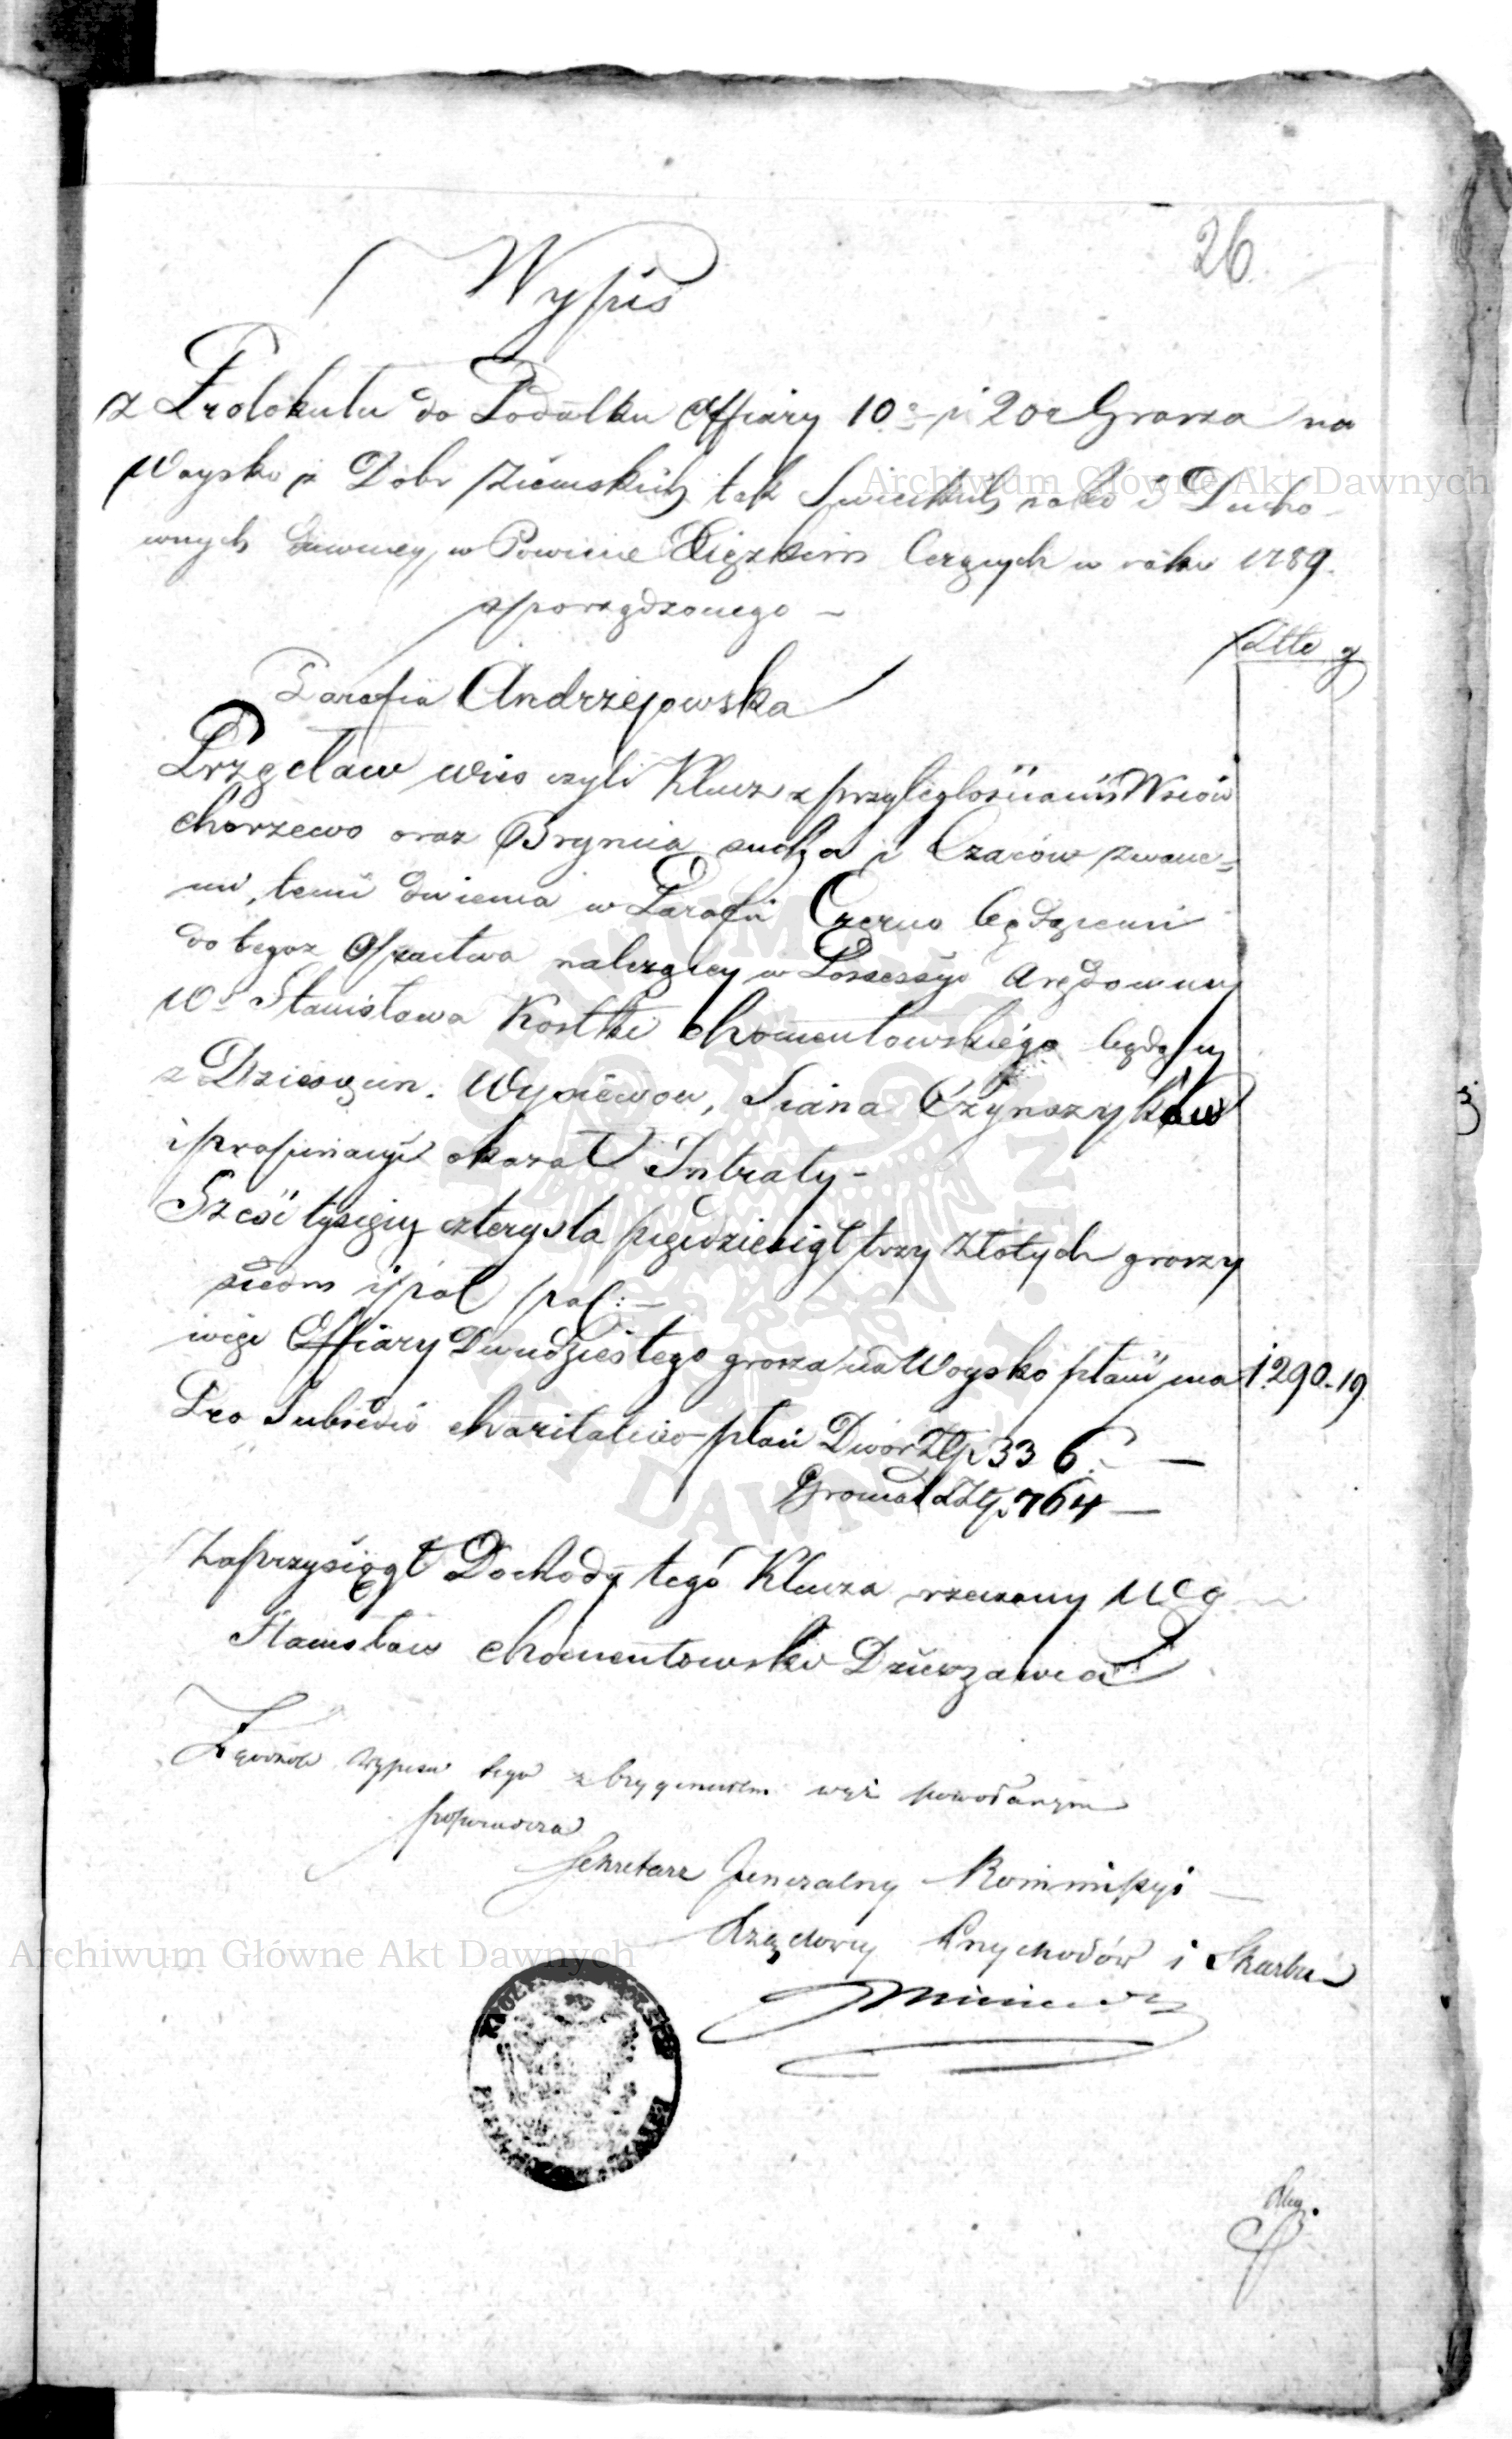 26.
Wypis
z Protokułu do Podatku Offiary 10o i 20o Grosza na
Woysko z Dobr Ziemskich tak Swieckich jako i Ducho-
wnych dawniey w Powiecie Xiązkim leżących w roku 1789.
sporządzonego –
Złłe g
Parafia Andrzejowska
Przęcław wieś czyli Klucz z przyległościami Wsiów
Chorzewo oraz Brynica sucha i Czaców zwane=
mi, temi dwiema w Parafii Czerno będącemi
do tegoż Opactwa należący w Possessyi Arędowney
Wo Stanisława Kostki Chomentowskiego będący
z Dziesięcin. Wysiewow, Siana Czynszyków
i propinacyi okazał Intraty –
Sześć tysięcy czterysta pięćdziesiąt trzy Złotych groszy
siedm i pół pol: –
więc Offiary Dwudziestego grosza na Woysko płacić ma 1.290.19.
Pro Subsidio charitativo płaci Dwór Złp 336. –
Gromad Złp. 764 –
Zaprzysiągł Dochody tego Klucza rzeczony
Stanisław Chomentowski Dzierzawca
Zgodność Wypisu tego z Oryginałem wyż powołanym
poswiadcza
Sekretarz Jeneralny Kommissyi –
Rządowey Przychodów i Skarbu
Archiwum Główne Akt Dawnych
Archiwum Główne Akt Dawnych